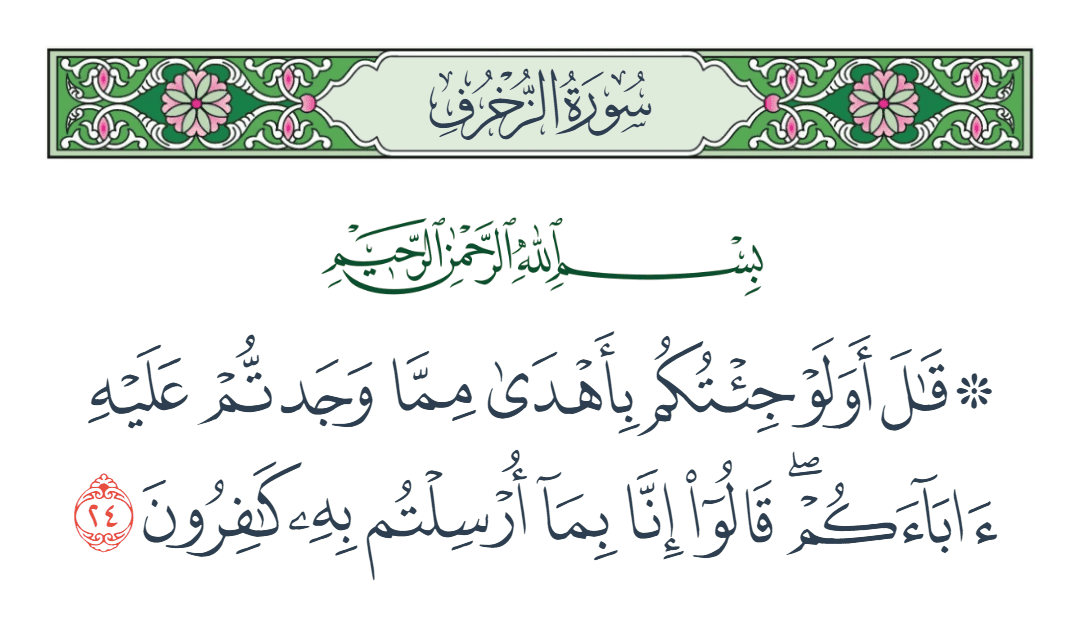 سُورَةُ الزُّخْرُفِ
بِسْمِ ٱللَّهِ ٱلرَّحْمَٰنِ ٱلرَّحِيمِ
۞ قَٰلَ أَوَلَوْ جِئْتُكُم بِأَهْدَىٰ مِمَّا وَجَدتُّمْ عَلَيْهِ
ءَابَآءَكُمْۖ قَالُوٓا۟ إِنَّا بِمَآ أُرْسِلْتُم بِهِۦ كَٰفِرُونَ ٢٤